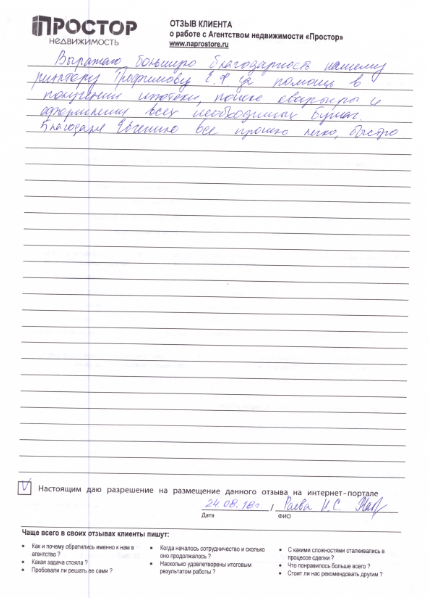 ПРОСТОР
НЕДВИЖИМОСТЬ
ОТЗЫВ КЛИЕНТА
о работе с Агентством недвижимости «Простор»
www.naprostore.ru
Выражаю большую благодарность нашему
риэлтору Трофимову Е.Ф за помощь в
получении ипотеки, поиске квартиры и
оформлении всех необходимых бумаг.
Благодаря Евгению все прошло легко, быстро
V Настоящим даю разрешение на размещение данного отзыва на интернет-портале
24.08.18г. / И.С.
Дата ФИО
Чаще всего в своих отзывах клиенты пишут:
• Как и почему обратились именно к нам в
агентство ?
• Какая задача стояла ?
• Пробовали ли решать ее сами ?
• Когда началось сотрудничество и сколько
оно продолжалось ?
• Насколько удовлетворены итоговым
результатом работы ?
• С какими сложностями сталкивались в
процессе сделки ?
• Что понравилось больше всего ?
• Стоит ли нас рекомендовать другим ?